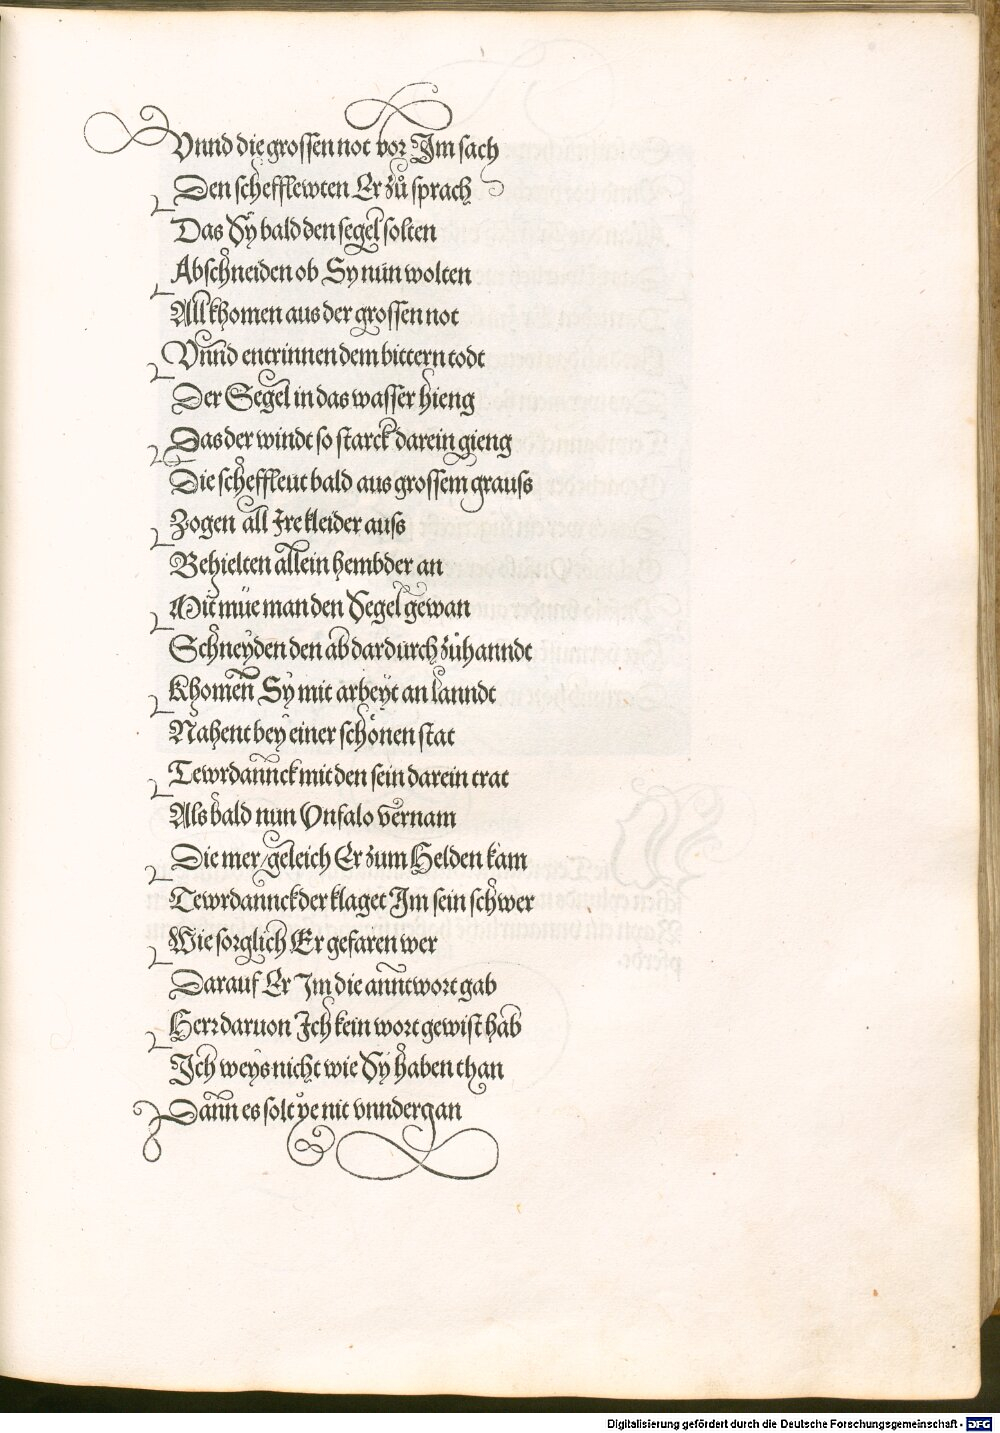 Vnnd die grossen not vor Im sach
Den schefflewten Er zů sprach
Das Sy bald den segel solten
Abschneiden ob Sy nun wolten
All khomen aus der grossen not
Vnnd entrinnen dem bittern todt
Der Segel in das wasser hieng
Das der windt so starck darein gieng
Die scheffleut bald aus grossem grauss
Zogen all Ire kleider auss
Behielten allein hembder an
Mit müe man den Segel gewan
Schneyden den ab dardurch zůhanndt
Khomen Sy mit arbeyt an lanndt
Nahent bey einer schönen stat
Tewrdannck mit den sein darein trat
Als bald nun Vnfalo vernam
Die mer / geleich Er zum Helden kam
Tewrdannck der klaget Im sein schwer
Wie sorglich Er gefaren wer
Darauf Er Im die anntwort gab
Herr daruon Ich kein wort gewist hab
Ich weys nicht wie Sy haben than
Dann es solt ye nit vnndergan
Digitalisierung gefördert durch die Deutsche Forschungsgemeinschaft - DFG